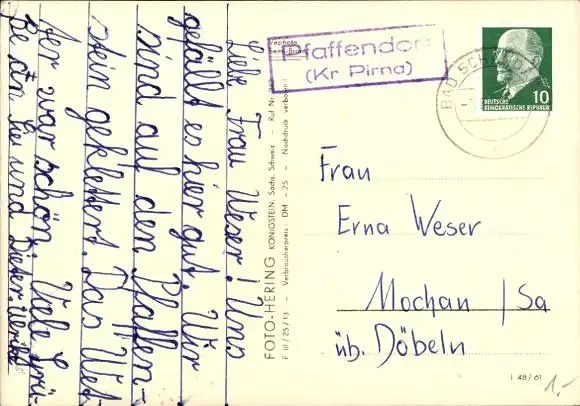 Liebe Frau Weser! Uns
gefällt es hier gut. Wir
sind auf den Pfaffen-
stein geklettert. Das Wet-
ter war schön. Viele Grü-
ße an Sie und Dieter.
FOTO-HERING KÖNIGSTEIN, Sächs. Schweiz - Ruf Nr.
F III / 25 / 13 - Verbraucherpreis: DM -,25 - Nachdruck verboten!
Pfaffendorf
(Kr Pirna)
BAD SCHANDAU
DEUTSCHE
DEMOKRATISCHE REPUBLIK
10
Frau
Erna Weser
Mochau / Sa
üb. Döbeln
I 48/61
1,-